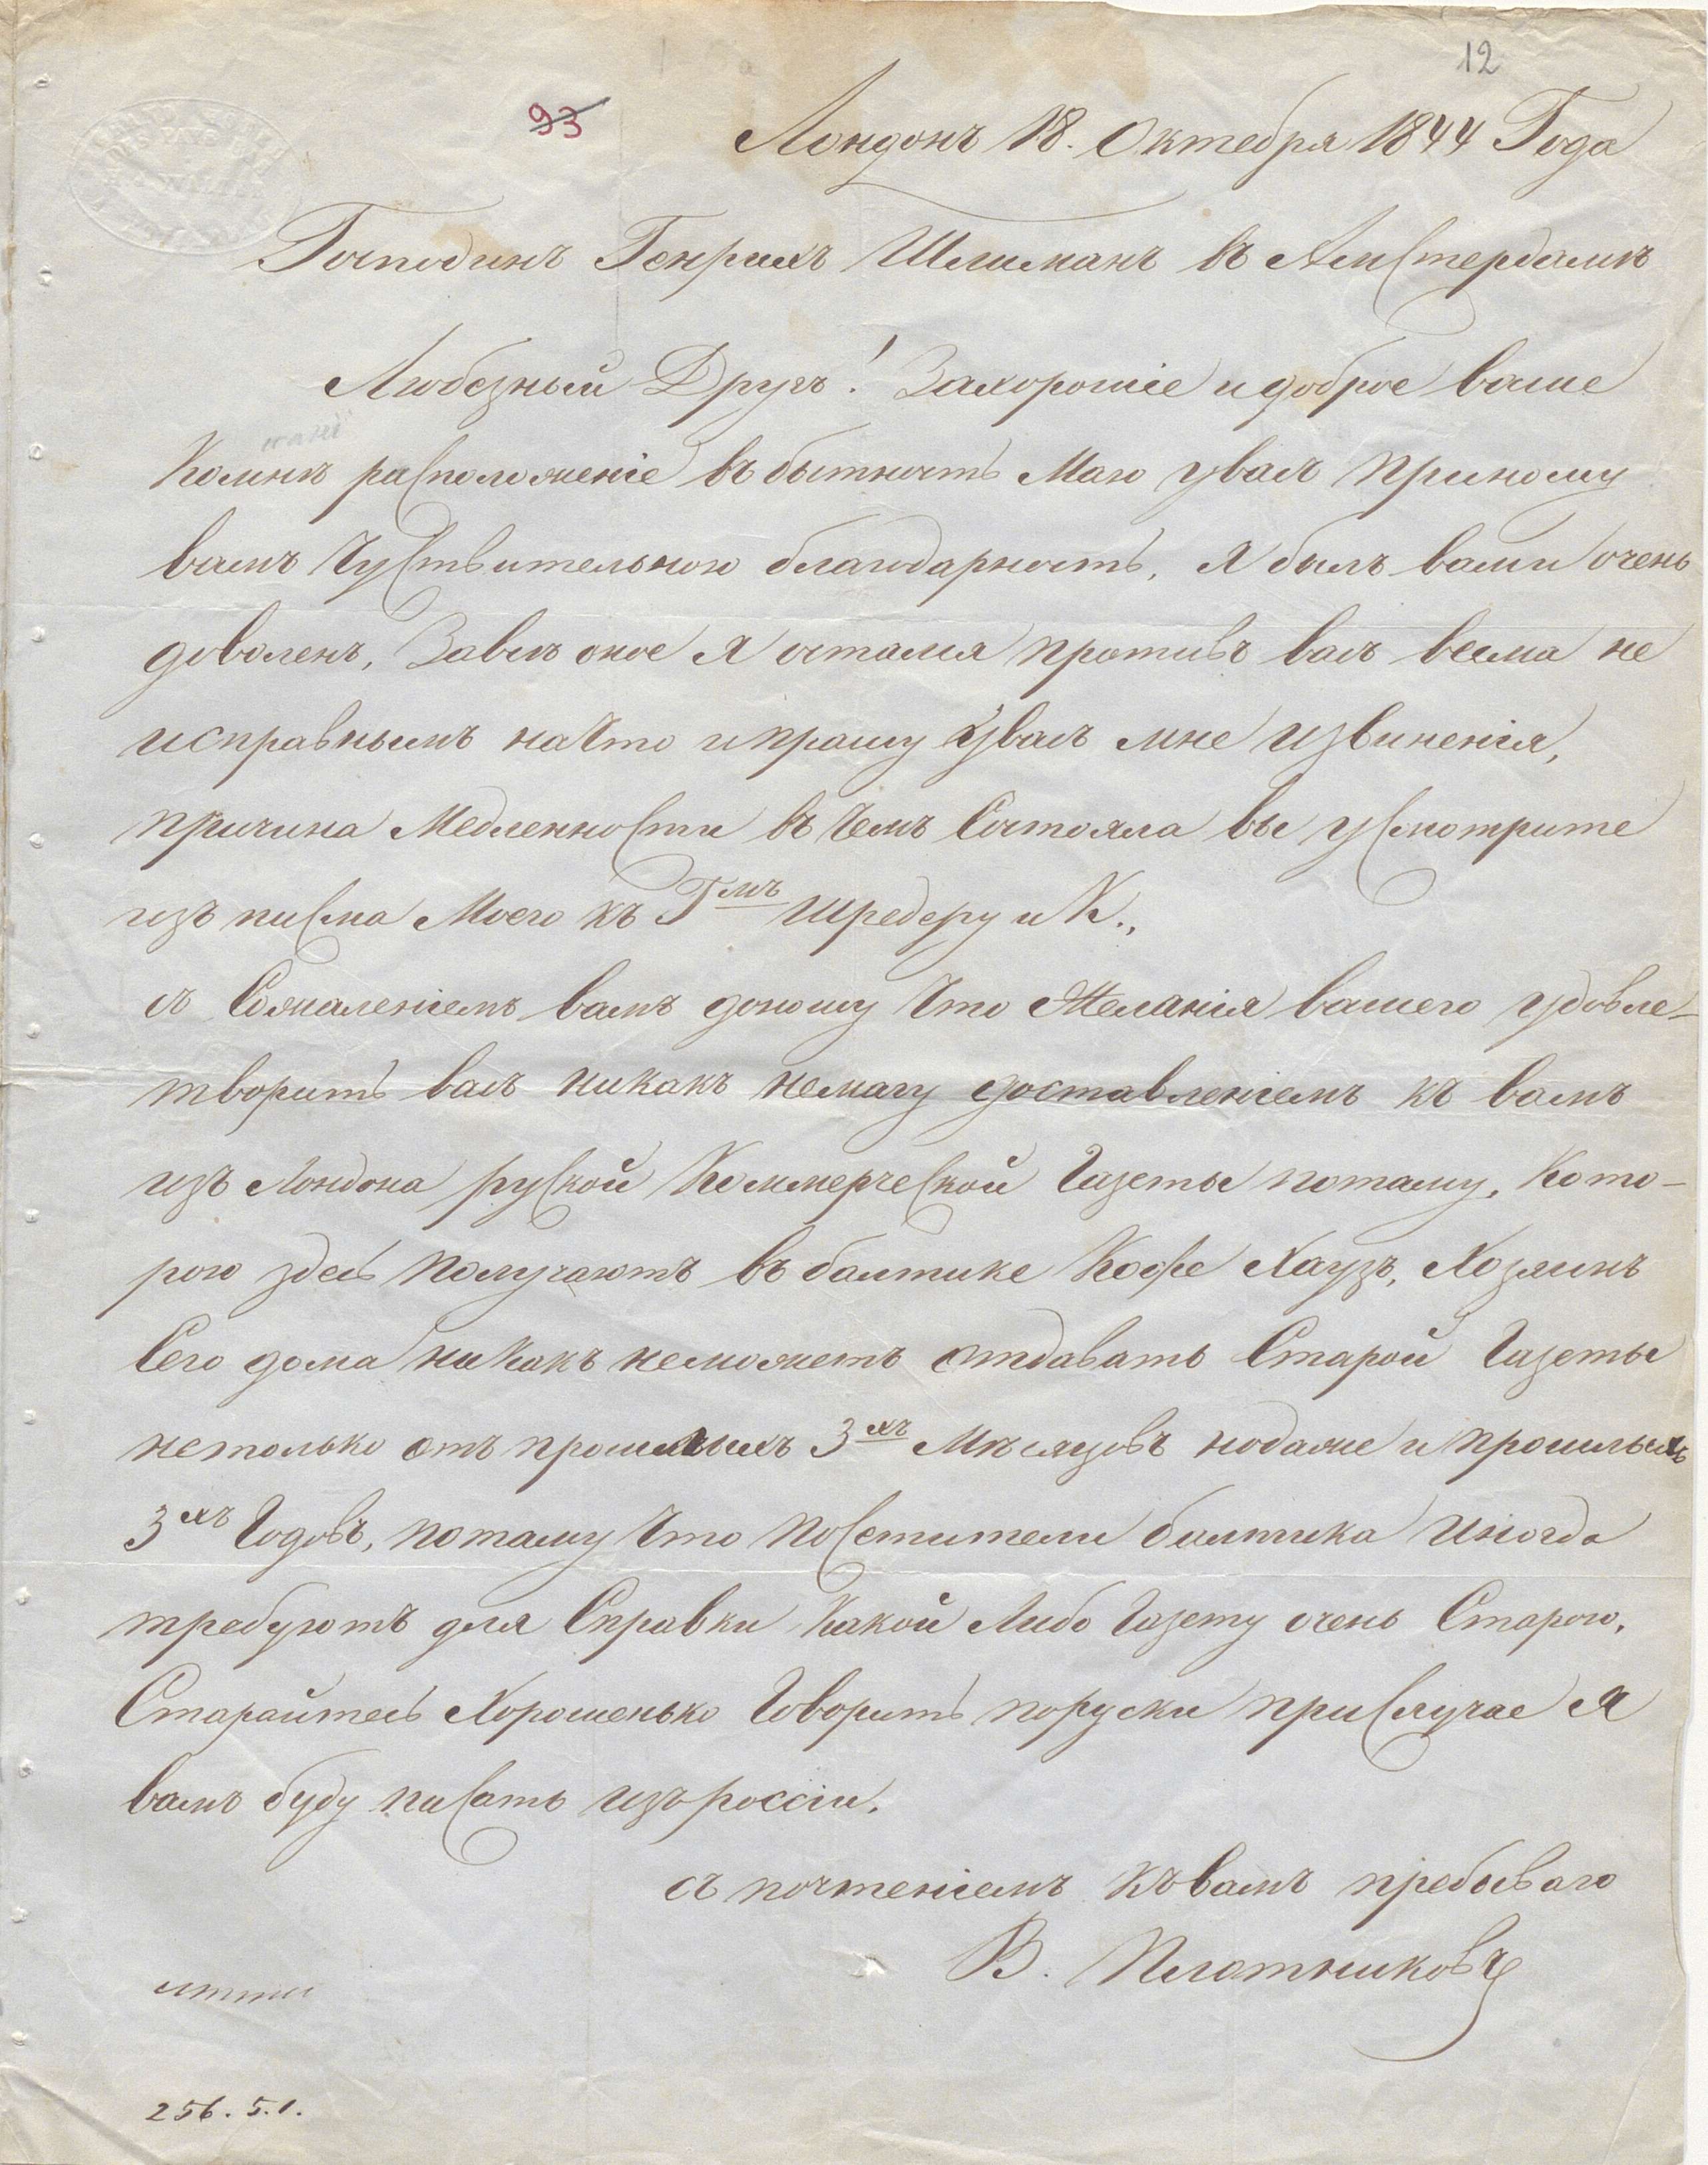 12
93
Лондонъ 18. Октебря 1844 Года
Господинъ Генрихъ Шлиманъ въ Амстердамѣ
Любезный Другъ! Захорошіе и доброе ваше
Комънѣ расположеніе въ бытность Маю увасъ приношу
вамъ Чуствительною благодарность, Я былъ вами очень
доволенъ, Завсѣ оное Я остался противъ васъ весма не
исправнымъ на Что и прашу увасъ мне извиненія,
причина Медленности въ Чемъ Состояла вы усмотрите
изъ писма Моего къ Г<sup>мъ</sup> Шредеру и К.,
съ Сожалениемъ вамъ доношу Что Желанія вашего удовле-
творить васъ никакъ немагу доставленіемъ къ вамъ
изъ Лондона руской Коммерческой Газеты потаму, Кото-
рою здесь Получаютъ въ балтике Кофе Хаузъ, Хозяинъ
Сего дома ни Какъ неможетъ отдавать Старой Газеты
нетолько отъ прошлыхъ 3<sup>хъ</sup> Мѣсяцовъ нодаже и прошлыхъ
3<sup>хъ</sup> Годовъ, потаму Что Посетители балтика Иногда
требуютъ для Справки Какой Либо Газету очень Старою,
Старайтесь Хорошенько Говорить поруски при Случае Я
вамъ буду писать изъ россіи,
съ почтеніемъ къ вамъ пребываю
В. Плотниковъ
256.5.1.